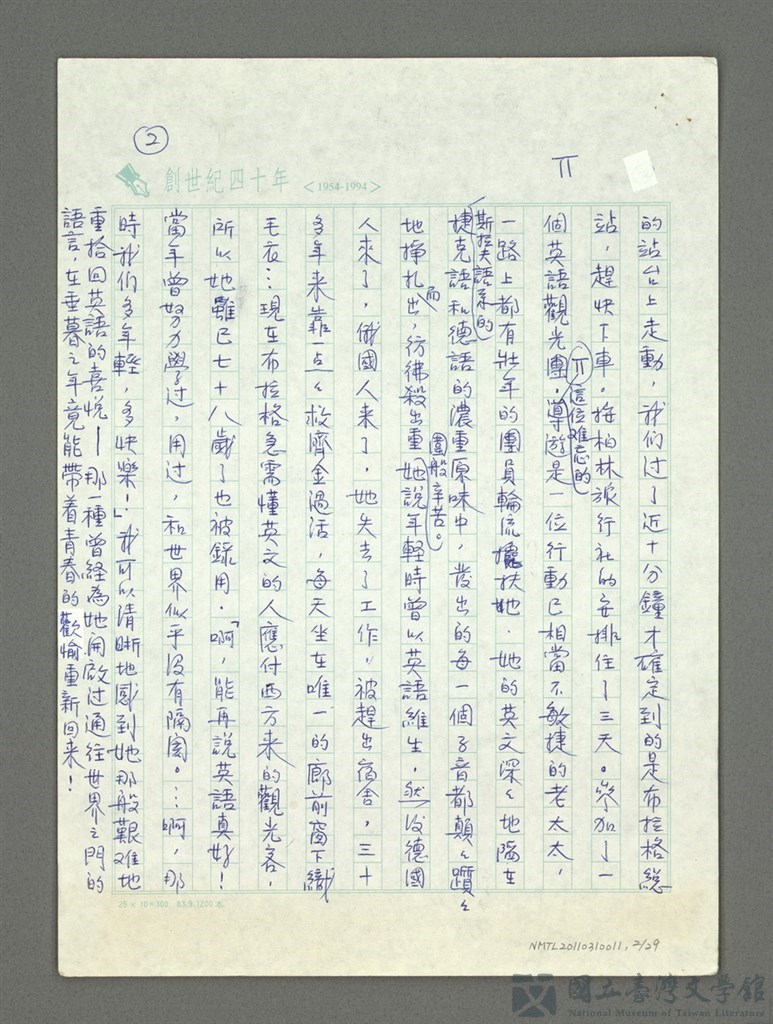 ②
創世紀四十年 <1954-1994>
П
的站台上走動，我们过了近十分鐘才確定到的是布拉格總
站，趕快下車。按柏林旅行社的安排住了三天。參加了一
個英語觀光團。導遊是一位行動已相當不敏捷的老太太，
П這位难忘的
一路上都有壯年的團員輪流攙扶她．她的英文深々地陷在
斯拉夫語系的
捷克語和德語的濃重原味中，發出的每一個子音都顛々躓々
地掙扎而出，彷彿殺出重圍般辛苦。她說年輕時曾以英語維生，然后德國
人來了，俄國人来了，她失去了工作，被趕出宿舍，三十
多年来靠一点々救濟金過活，每天坐在唯一的廊前窗下織
毛衣…現在布拉格急需懂英文的人應付西方来的觀光客，
所以她雖已七十八歲了也被錄用．「啊，能再說英語真好！
當年曾努力學过，用过，和世界似乎没有隔閡。…啊，那
時我们多年輕，多快樂！」我可以清晰地感到她那般艱难地
重拾回英語的喜悅—那一種曾経為她開啟过通往世界之門的
語言，在垂暮之年竟能帶着青春的歡愉重新回来！
25 × 12=300
NMTL20110310011, 2/29
國立臺灣文學館
National Museum of Taiwan Literature